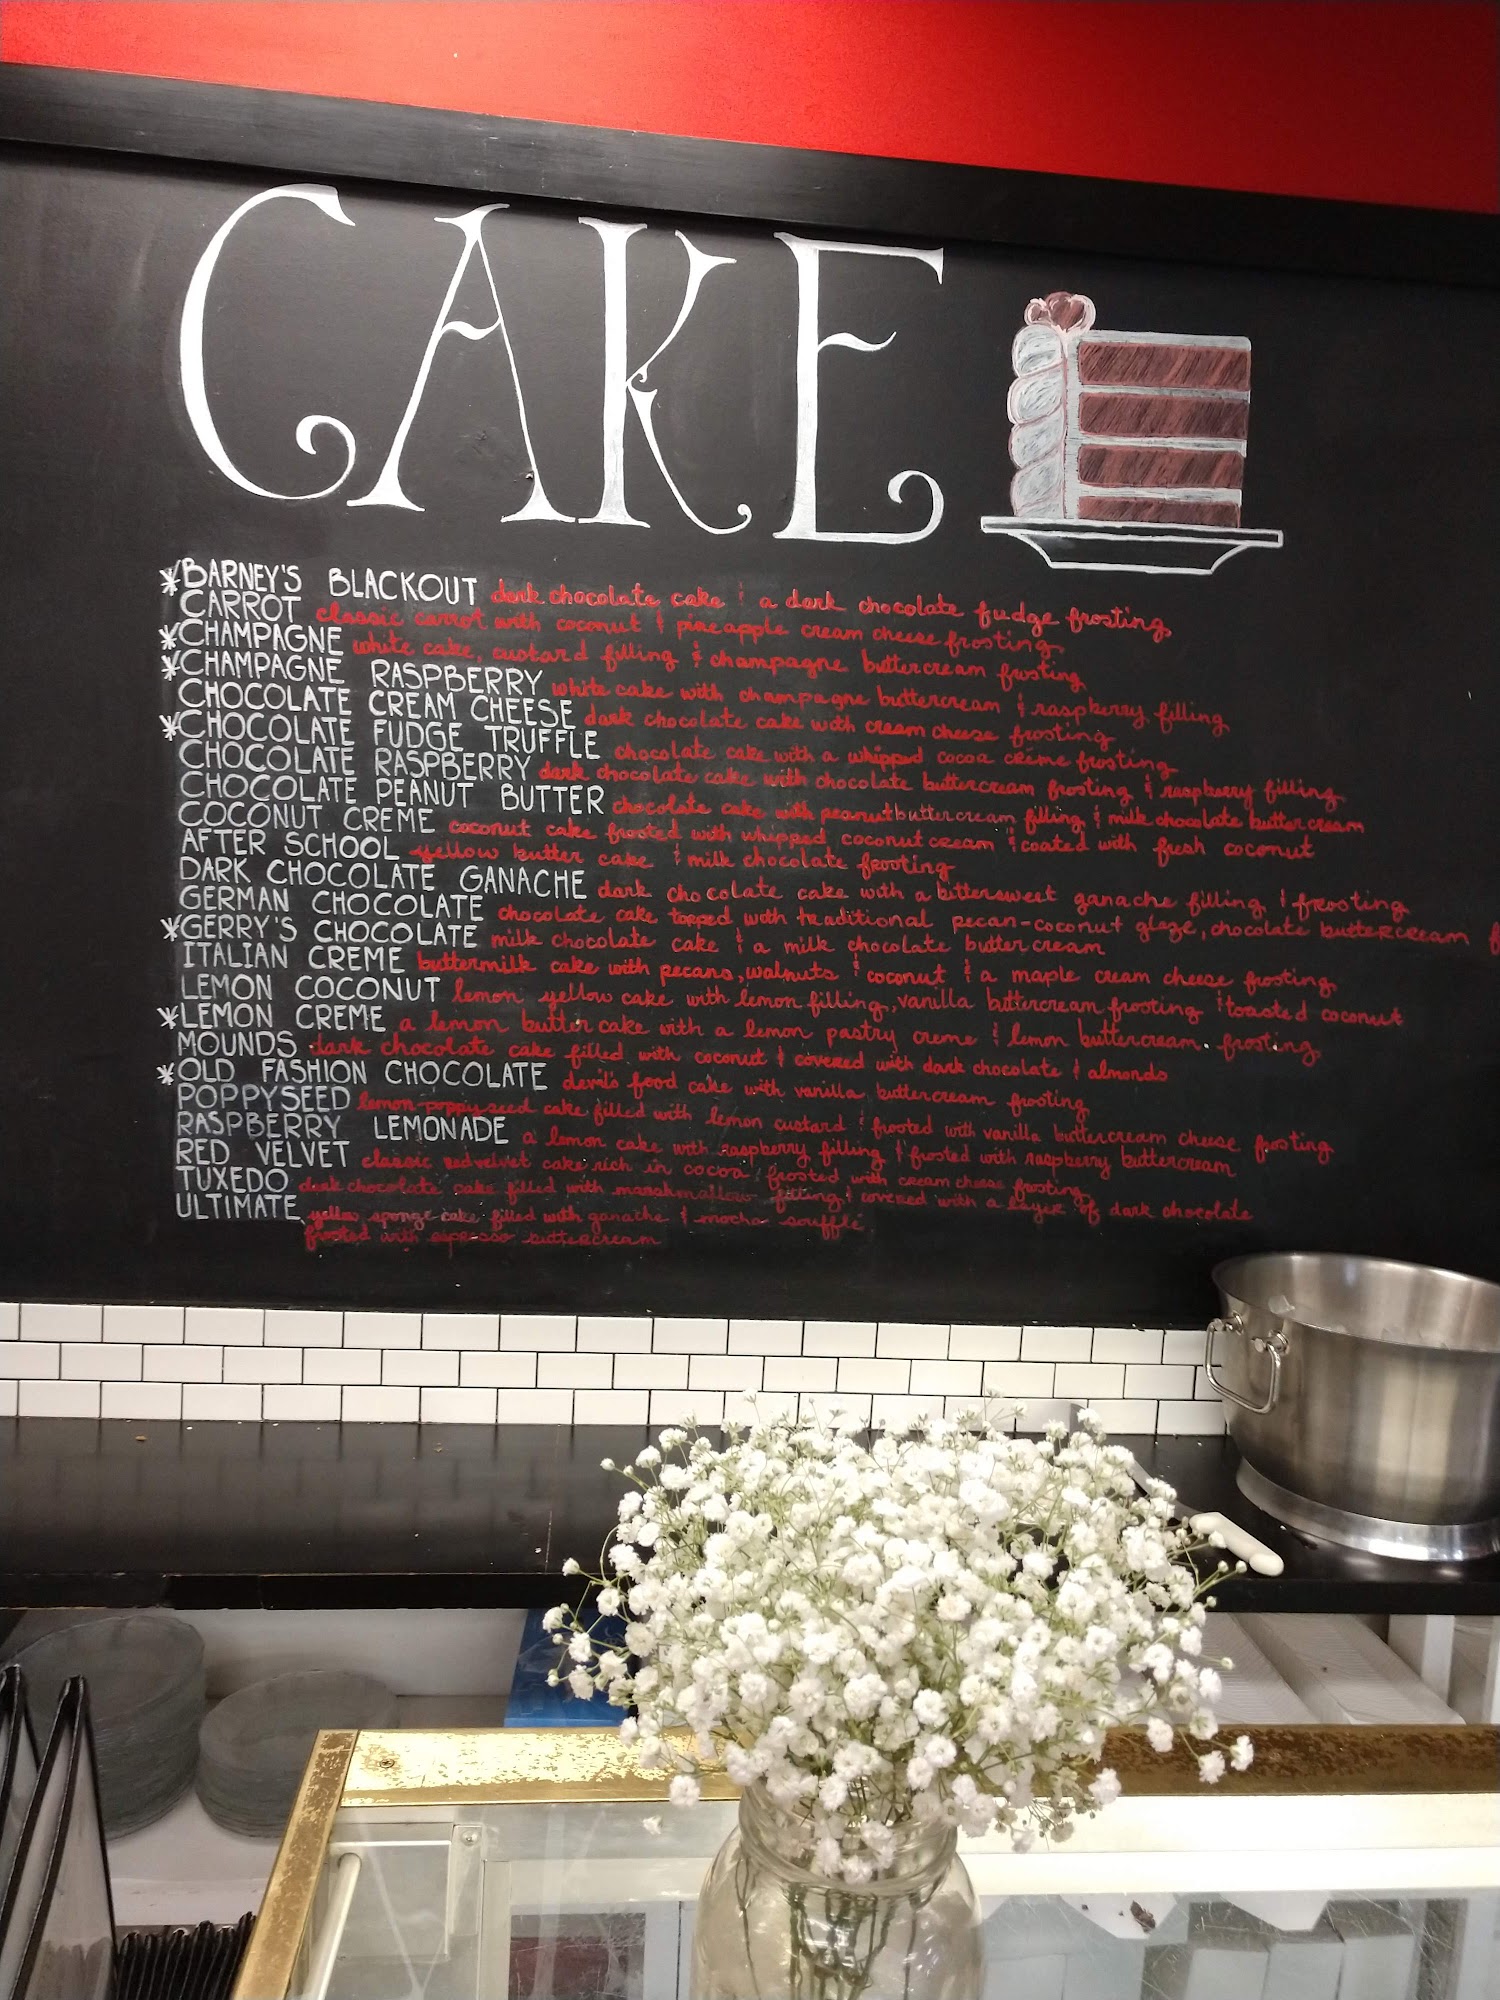 CAKE
*BARNEY'S BLACKOUT dark chocolate cake & a dark chocolate fudge frosting
CARROT classic carrot with coconut & pineapple cream cheese frosting
*CHAMPAGNE white cake, custard filling & champagne buttercream frosting
*CHAMPAGNE RASPBERRY white cake with champagne buttercream & raspberry filling
CHOCOLATE CREAM CHEESE dark chocolate cake with cream cheese frosting
*CHOCOLATE FUDGE TRUFFLE chocolate cake with a whipped cocoa créme frosting
CHOCOLATE RASPBERRY dark chocolate cake with chocolate buttercream frosting & raspberry filling
CHOCOLATE PEANUT BUTTER chocolate cake with peanutbuttercream filling & milk chocolate buttercream
COCONUT CREME coconut cake frosted with whipped coconut cream & coated with fresh coconut
AFTER SCHOOL yellow butter cake & milk chocolate frosting
DARK CHOCOLATE GANACHE dark chocolate cake with a bittersweet ganache filling & frosting
GERMAN CHOCOLATE chocolate cake topped with traditional pecan-coconut glaze, chocolate buttercream
*GERRY'S CHOCOLATE milk chocolate cake & a milk chocolate buttercream
ITALIAN CREME buttermilk cake with pecans, walnuts & coconut & a maple cream cheese frosting
LEMON COCONUT lemon yellow cake with lemon filling, vanilla buttercream frosting & toasted coconut
*LEMON CREME a lemon butter cake with a lemon pastry creme & lemon buttercream frosting
MOUNDS dark chocolate cake filled with coconut & covered with dark chocolate & almonds
*OLD FASHION CHOCOLATE devil's food cake with vanilla buttercream frosting
POPPYSEED lemon-poppyseed cake filled with lemon custard & frosted with vanilla buttercream cheese frosting
RASPBERRY LEMONADE a lemon cake with raspberry filling & frosted with raspberry buttercream
RED VELVET classic red velvet cake rich in cocoa & frosted with cream cheese frosting
TUXEDO dark chocolate cake filled with marshmallow filling & covered with a layer of dark chocolate
ULTIMATE yellow sponge cake filled with ganache & mocha soufflé
frosted with espresso buttercream